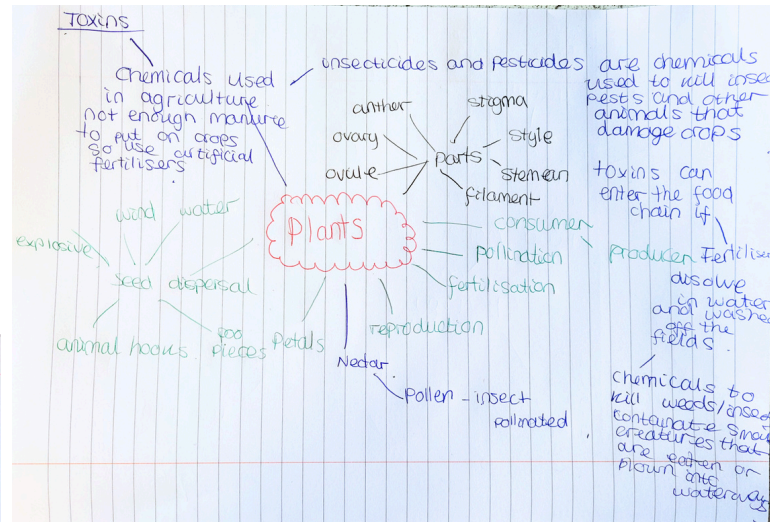 Toxins
Chemicals used
in agriculture
not enough manure
to put on crops
so use artificial
fertilisers.
insecticides and pesticides are chemicals
used to kill insec
pests and other
animals that
damage crops
anther
stigma
ovary
style
ovule
parts
stemean
filament
toxins can
enter the food
chain if
Fertilise
disolve
in water
and washe
off the
fields.
Chemicals to
kill weeds/insec
contanate smal
creatures that
are eaten or
blown into
waterways
Plants
consumer
producer
pollination
fertilisation
reproduction
Petals
Nectar
pollen - insect
pollinated
wind
water
explosive
seed dispersal
animal hooks
poo
pieces